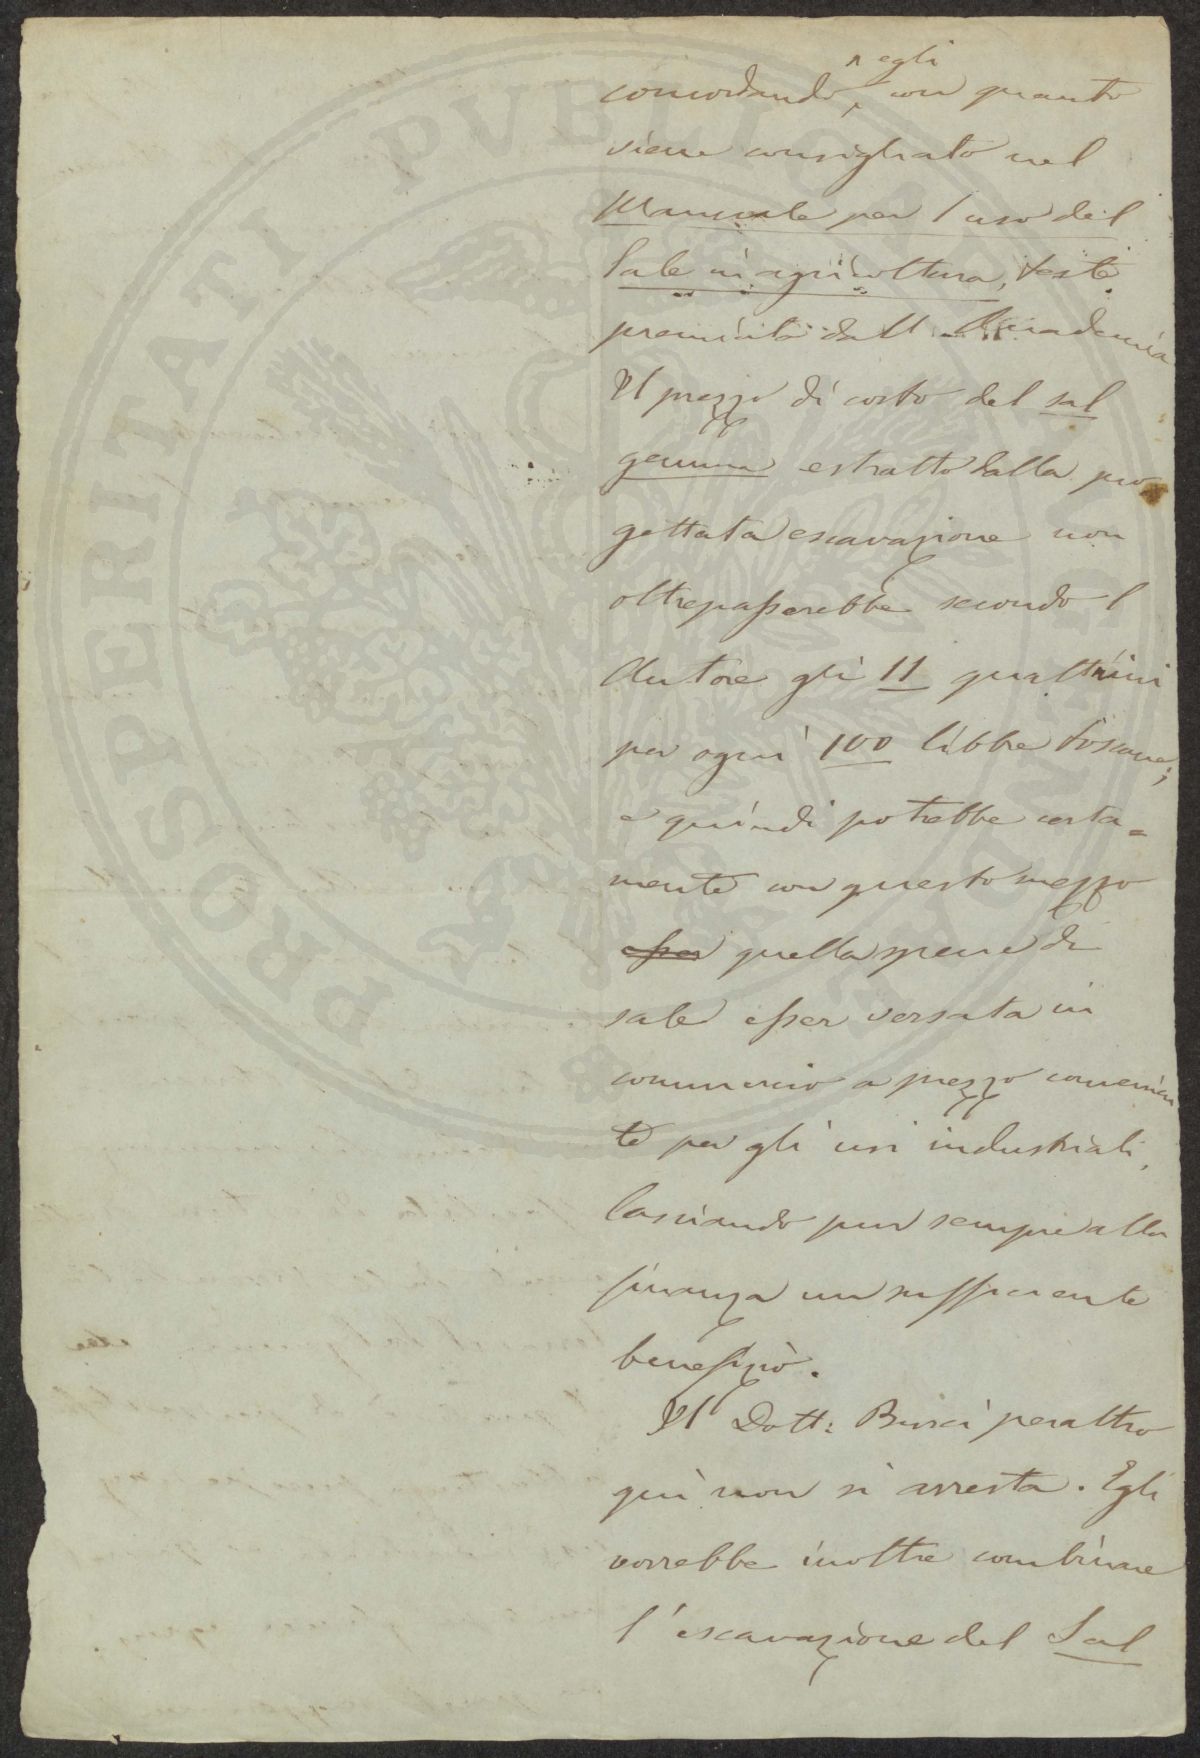 concordando, egli con quanto
viene consigliato nel
Manuale per l uso del
Sale in agricoltura, testè
premiato dall Accademia
Il prezzo di costo del sal
gemma estratto dalla pro
gettata escavazione non
oltrepasserebbe secondo l
Autore gli 11 quattrini
per ogni 100 libbre toscane;
e quindi potrebbe certa=
mente con questo mezzo
esser quella specie di
sale esser versata in
commercio a prezzo convenien
te per gli usi industriali,
lasciando pur sempre alla
finanza un sufficiente
benefizio.
Il Dott: Busci peraltro
quì non si arresta. Egli
vorrebbe inoltre combinare
l'escavazione del Sal
PROSPERITATI PVBLICAE AVGENDAE